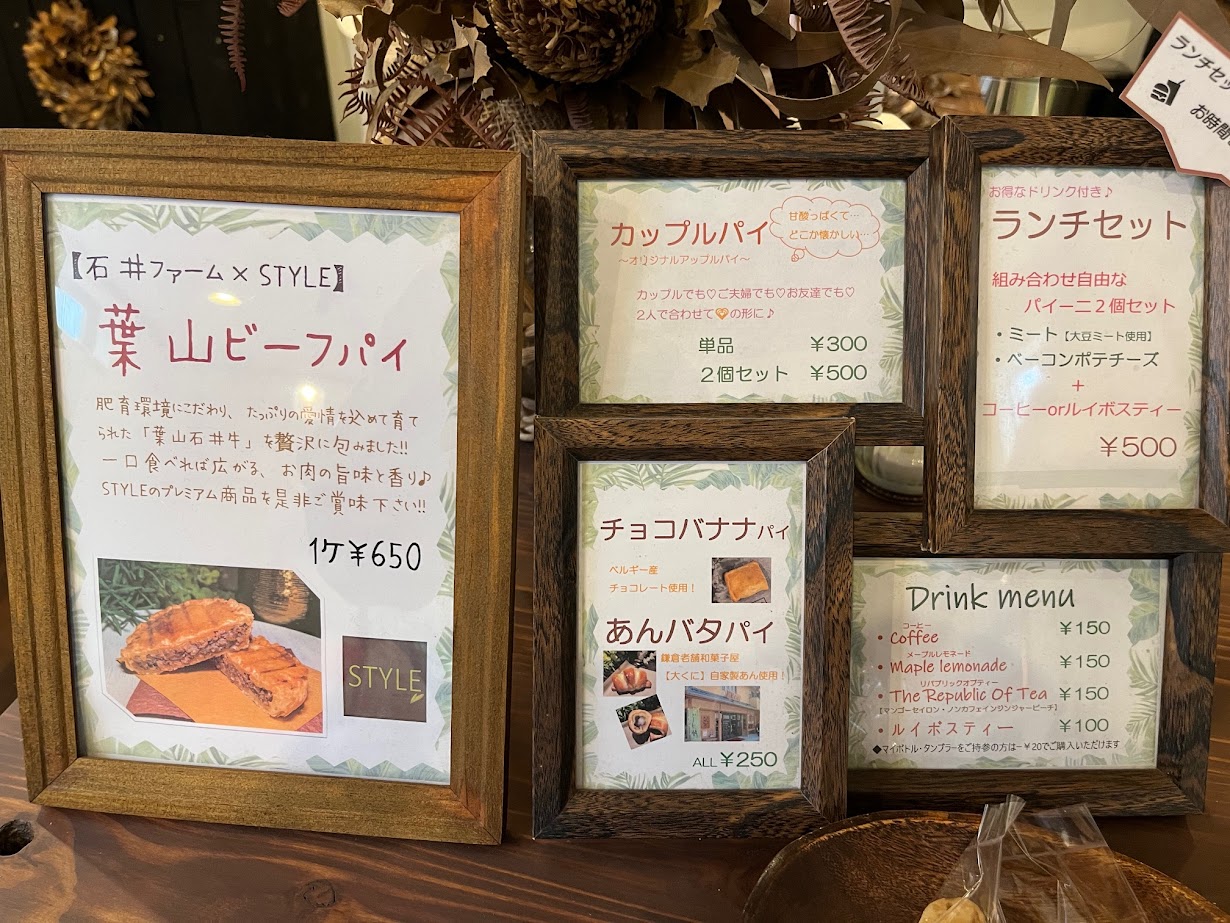 【石井ファーム×STYLE】
葉山ビーフパイ
肥育環境にこだわり、たっぷりの愛情を込めて育て
られた「葉山石井牛」を贅沢に包みました!!
一口食べれば広がる、お肉の旨味と香り♪
STYLEのプレミアム商品を是非ご賞味下さい!!
1ケ¥650
STYLE
カップルパイ
甘酸っぱくて…
どこか懐かしい…
～オリジナルアップルパイ～
カップルでも♡ご夫婦でも♡お友達でも♡
2人で合わせて🧡の形に♪
単品 ¥300
2個セット ¥500
チョコバナナパイ
ベルギー産
チョコレート使用！
あんバタパイ
鎌倉老舗和菓子屋
【大くに】自家製あん使用！
ALL ¥250
お得なドリンク付き♪
ランチセット
組み合わせ自由な
パイーニ2個セット
・ミート【大豆ミート使用】
・ベーコンポテチーズ
+
コーヒーorルイボスティー
¥500
Drink menu
コーヒー
・Coffee ¥150
メープルレモネード
・Maple lemonade ¥150
リパブリックオブティー
・The Republic Of Tea ¥150
【マンゴーセイロン・ノンカフェインジンジャーピーチ】
・ルイボスティー ¥100
◆マイボトル・タンブラーをご持参の方は−￥20でご購入いただけます
ランチセッ
お時間